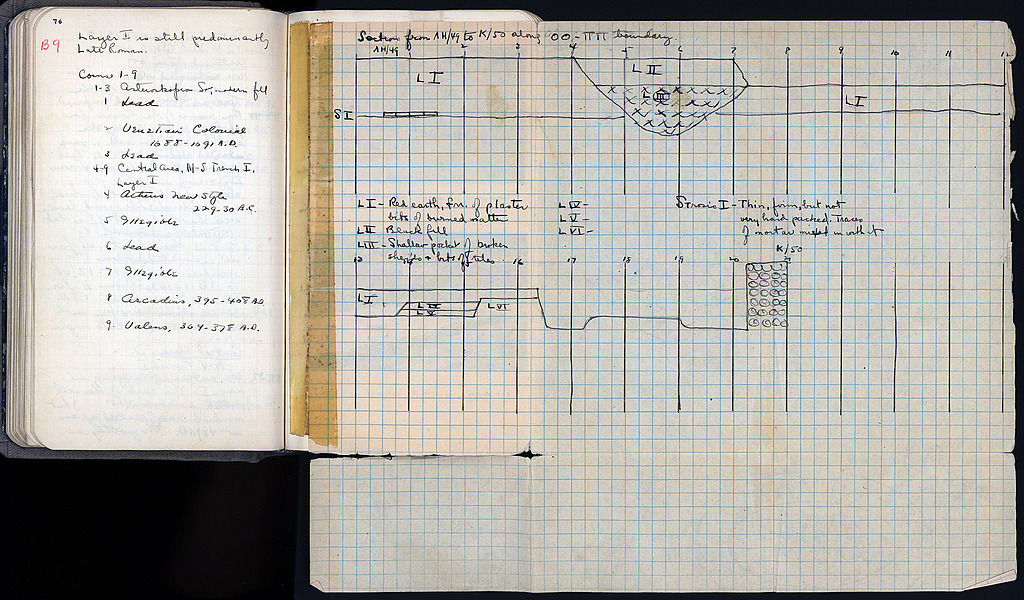 76
B9
Layer I is still predominantly
Late Roman.
Coins 1-9
1-3 modern fill
1 Lead
2 Venetian Colonial
1688-1691 A.D.
3 Lead
4-9 Central Area, N-S Trench I,
Layer I
4 Athens New Style
229-30 B.C.
5 Illegible
6 Lead
7 Illegible
8 Arcadius, 395-408 A.D.
9. Valens, 364-378 A.D.
Section from ΛH/49 to K/50 along OO-ΠΠ boundary.
ΛH/49 1 2 3 4 5 6 7 8 9 10 11 12
L I
L II
L III
L I
S I
L I - Red earth, of plaster
bits of burned matter
L II Black fill
L III - Shallow pocket of broken
sherds & bits of tiles
L IV -
L V -
L VI -
Strosis I - Thin, firm, but not
very hard packed. Traces
of mortar mixed in with it
K/50
13 14 15 16 17 18 19 20 21
L I
L IV
L V
L VI